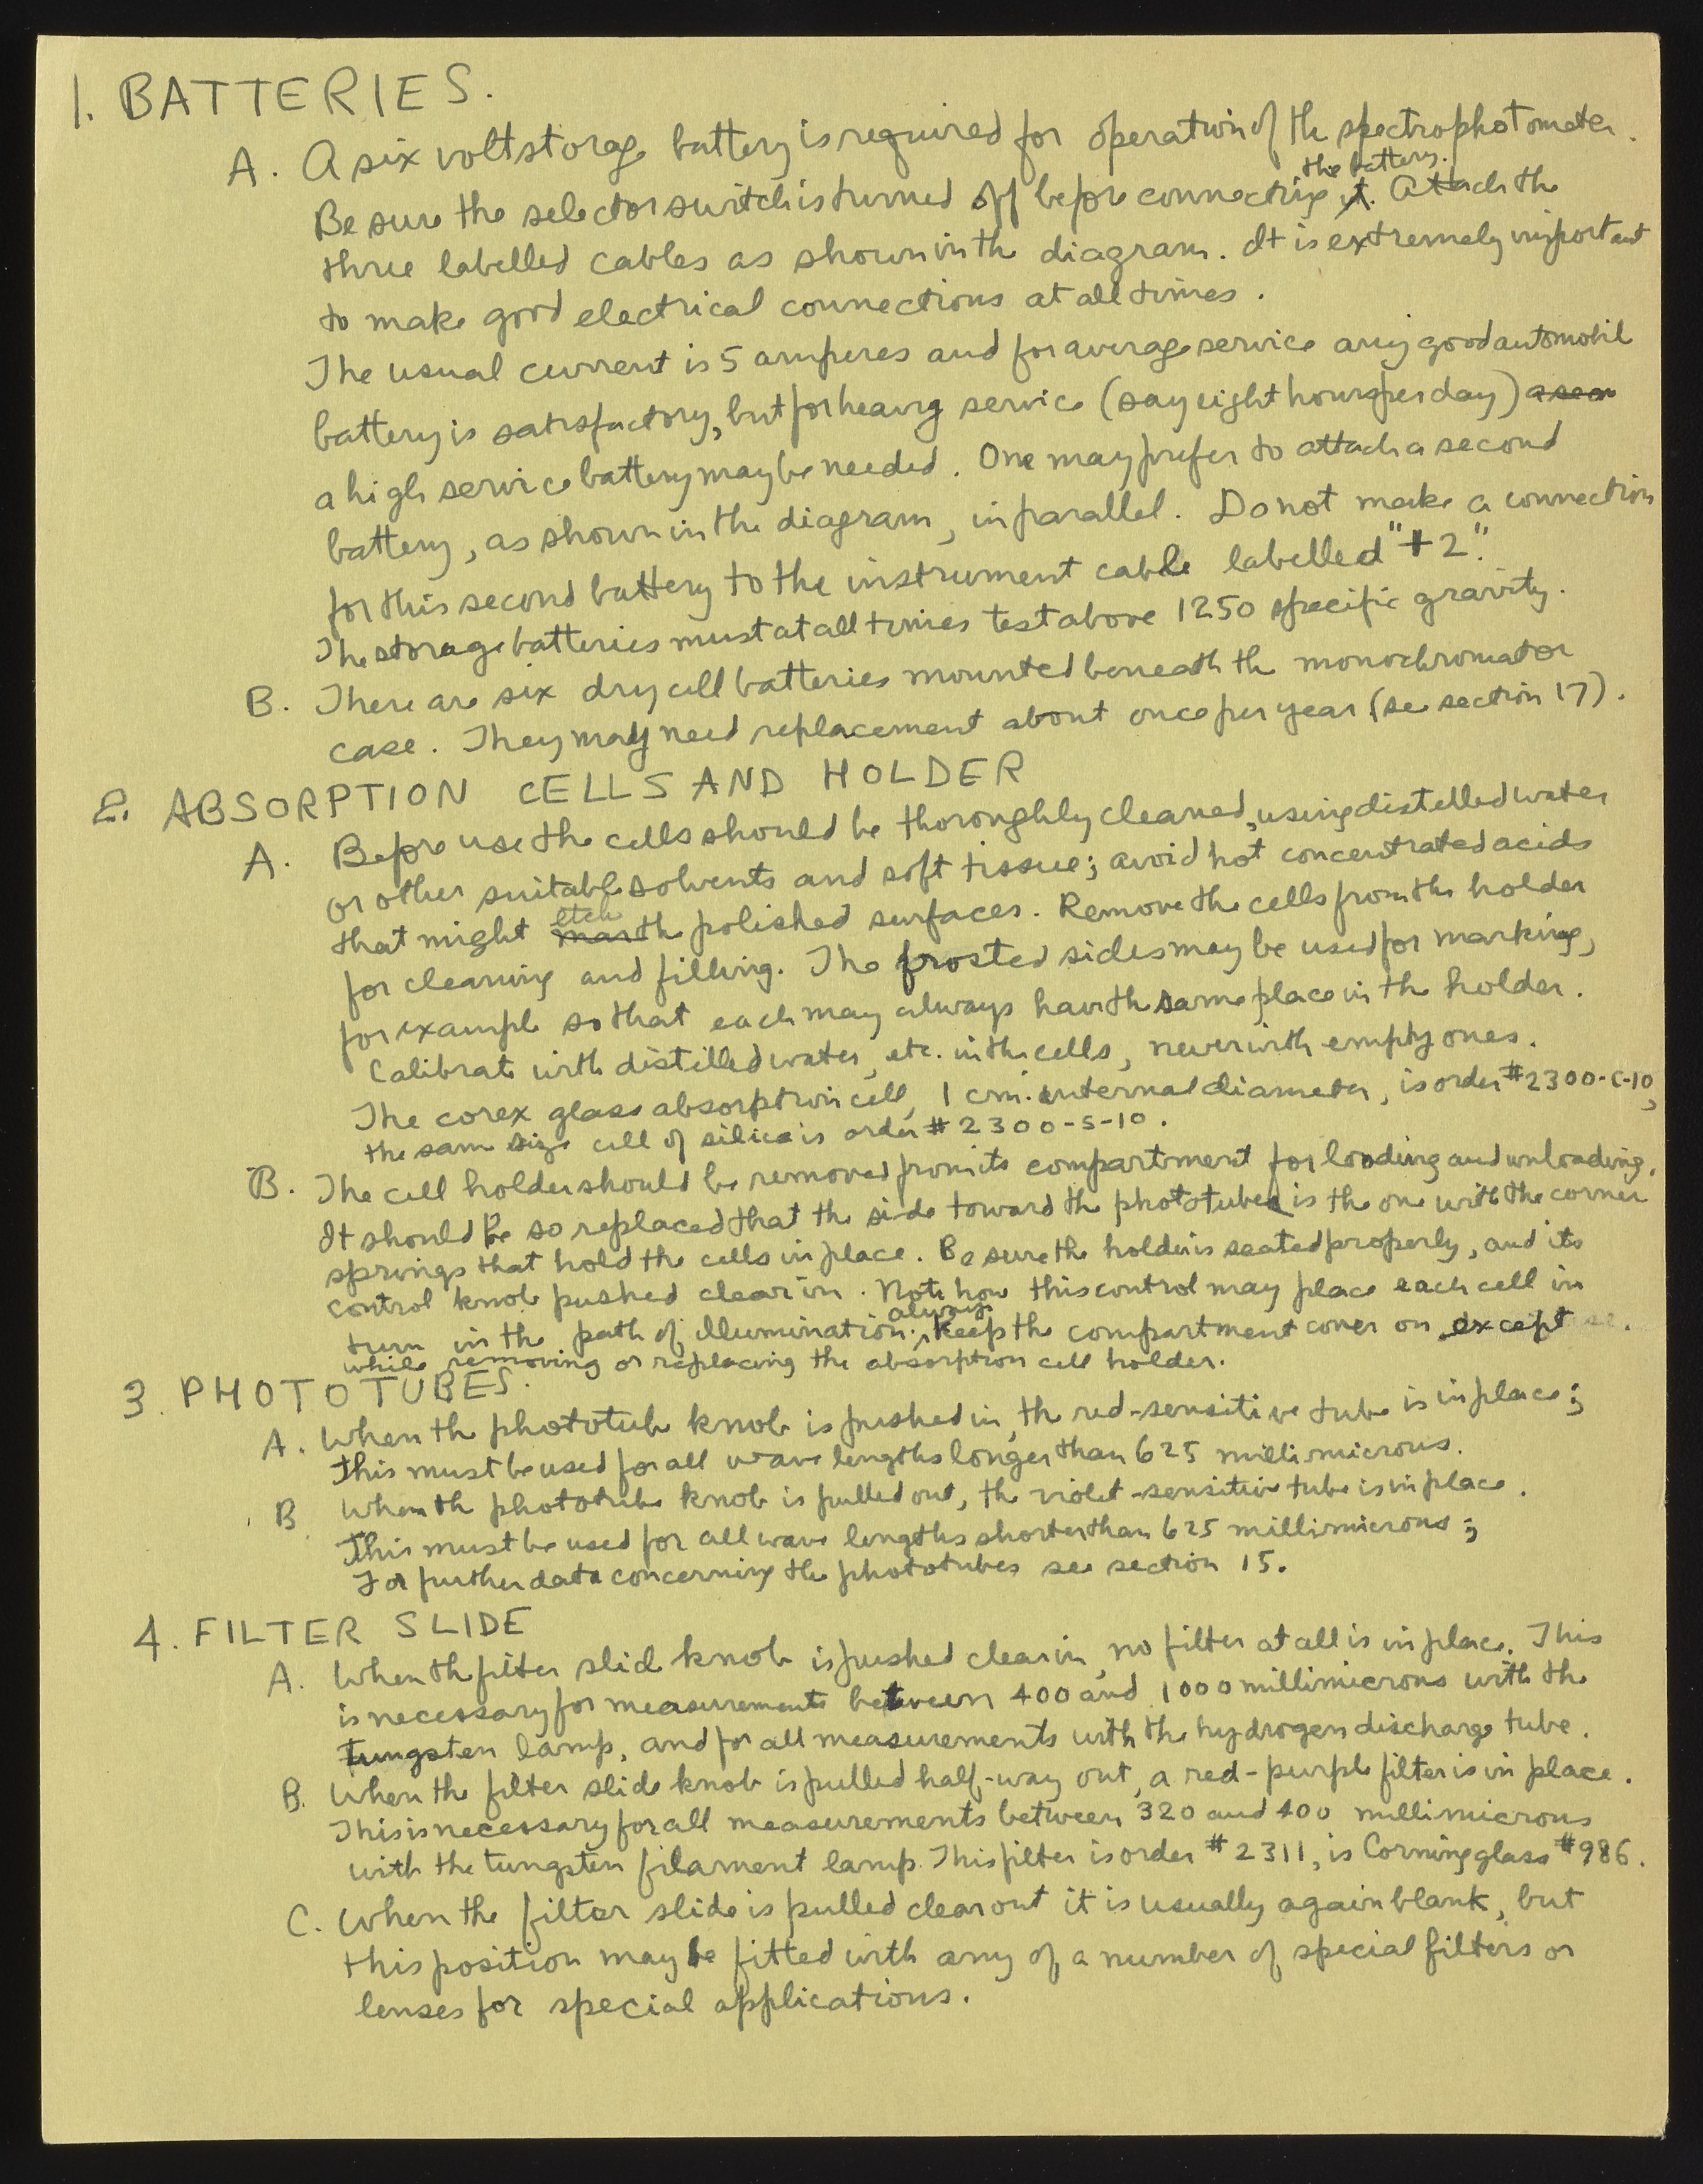 1. BATTERIES.
A. A six volt storage battery is required for operation of the spectrophotometer.
the battery.
Be sure the selector switch is turned off before connecting it. Attach the
three labelled cables as shown in the diagram. It is extremely important
to make good electrical connections at all times.
The usual current is 5 amperes and for average service any good automobile
battery is satisfactory, but for heavy service (say eight hours per day)
a high service battery may be needed. One may prefer to attach a second
battery, as shown in the diagram, in parallel. Do not make a connection
for this second battery to the instrument cable labelled "+2".
The storage batteries must at all times test above 1250 specific gravity.
B. There are six dry cell batteries mounted beneath the monochromator
case. They may need replacement about once per year (see section 17).
2. ABSORPTION CELLS AND HOLDER
A. Before use the cells should be thoroughly cleaned, using distilled water
or other suitable solvents and soft tissue; avoid hot concentrated acids
etch
that might mar the polished surfaces. Remove the cells from the holder
for cleaning and filling. The frosted sides may be used for marking,
for example so that each may always have the same place in the holder.
Calibrate with distilled water, etc. in the cells, never with empty ones.
The corex glass absorption cell, 1 cm. internal diameter, is order #2300-C-10,
the same size cell of silica is order #2300-S-10.
B. The cell holder should be removed from its compartment for loading and unloading.
It should be so replaced that the side toward the phototubes is the one with the corner
springs that hold the cells in place. Be sure the holder is seated properly, and its
control knob pushed clear in. Note how this control may place each cell in
always
turn in the path of illumination. Keep the compartment cover on except
while removing or replacing the absorption cell holder.
3. PHOTOTUBES.
A. When the phototube knob is pushed in, the red-sensitive tube is in place;
this must be used for all wave lengths longer than 625 millimicrons.
B. When the phototube knob is pulled out, the violet-sensitive tube is in place.
This must be used for all wave lengths shorter than 625 millimicrons;
For further data concerning the phototubes see section 15.
4. FILTER SLIDE
A. When the filter slide knob is pushed clear in, no filter at all is in place. This
is necessary for measurements between 400 and 1000 millimicrons with the
tungsten lamp, and for all measurements with the hydrogen discharge tube.
B. When the filter slide knob is pulled half-way out, a red-purple filter is in place.
This is necessary for all measurements between 320 and 400 millimicrons
with the tungsten filament lamp. This filter is order #2311, is Corning glass #986.
C. When the filter slide is pulled clear out it is usually again blank, but
this position may be fitted with any of a number of special filters or
lenses for special applications.